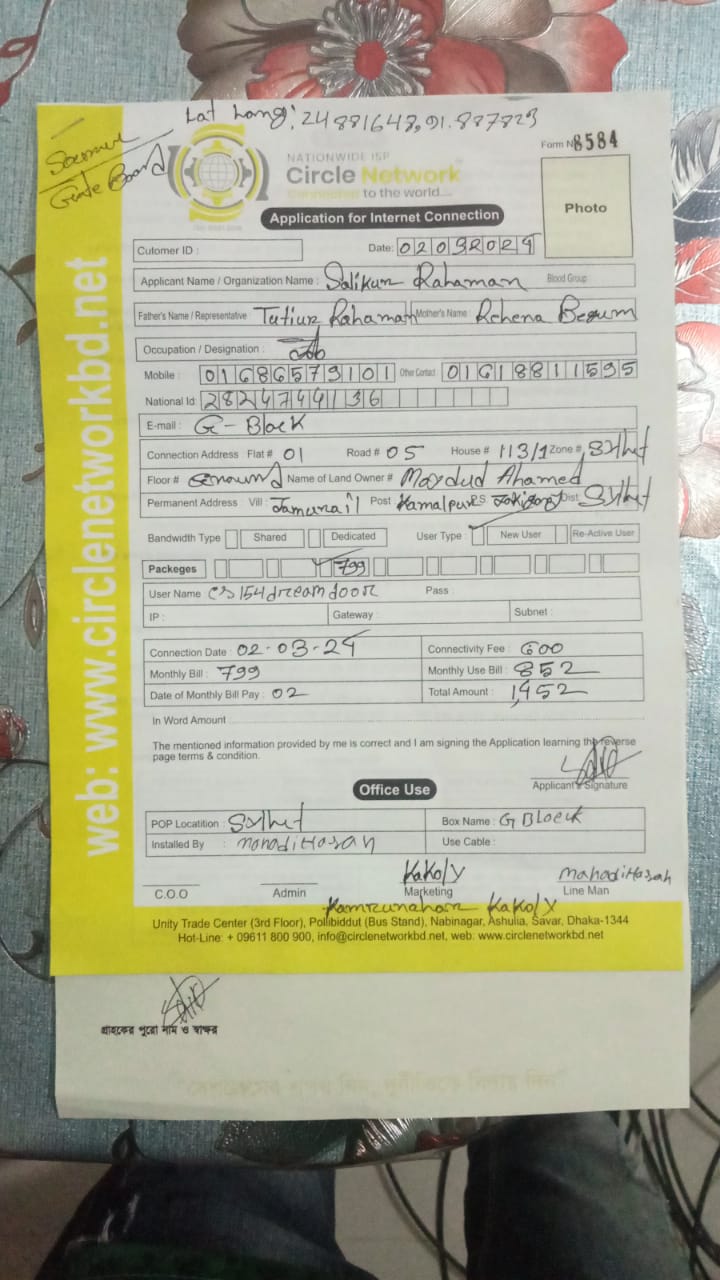 Lat Long: 24.881648,91.887829
Gate Board
Form N 8584
NATIONWIDE ISP
Circle Network
Connecting to the world....
Photo
Application for Internet Connection
Cutomer ID : Date: 02032024
Applicant Name / Organization Name : Salikur Rahaman Blood Group
Father's Name / Representative Rahaman Mother's Name : Rehena Begum
Occupation / Designation : Job
Mobile : 01686579101 Other Contact 01618811595
National Id. 2824744136
E-mail : G-Block
Connection Address Flat # 01 Road # 05 House # 113/1 Zone # Sylhet
Floor # Ground Name of Land Owner # Ahamed
Permanent Address Vill: Post Kamalpur P.S. Dist Sylhet
Bandwidth Type Shared Dedicated User Type : New User Re-Active User
Packeges 799
User Name cs154dreamdoor Pass :
IP : Gateway : Subnet :
Connection Date : 02-03-24 Connectivity Fee : 600
Monthly Bill : 799 Monthly Use Bill : 852
Date of Monthly Bill Pay : 02 Total Amount : 1,452
In Word Amount
The mentioned information provided by me is correct and I am signing the Application learning the reverse
page terms & condition.
Applicant's Signature
Office Use
POP Locatition : Sylhet Box Name : G Block
Installed By : Use Cable :
Kakoly MahadiHasan
C.O.O Admin Marketing Line Man
Kamrunahar Kakoly
Unity Trade Center (3rd Floor), Pollibiddut (Bus Stand), Nabinagar, Ashulia, Savar, Dhaka-1344
Hot-Line: + 09611 800 900, info@circlenetworkbd.net, web: www.circlenetworkbd.net
web: www.circlenetworkbd.net
গ্রাহকের পুরো নাম ও স্বাক্ষর